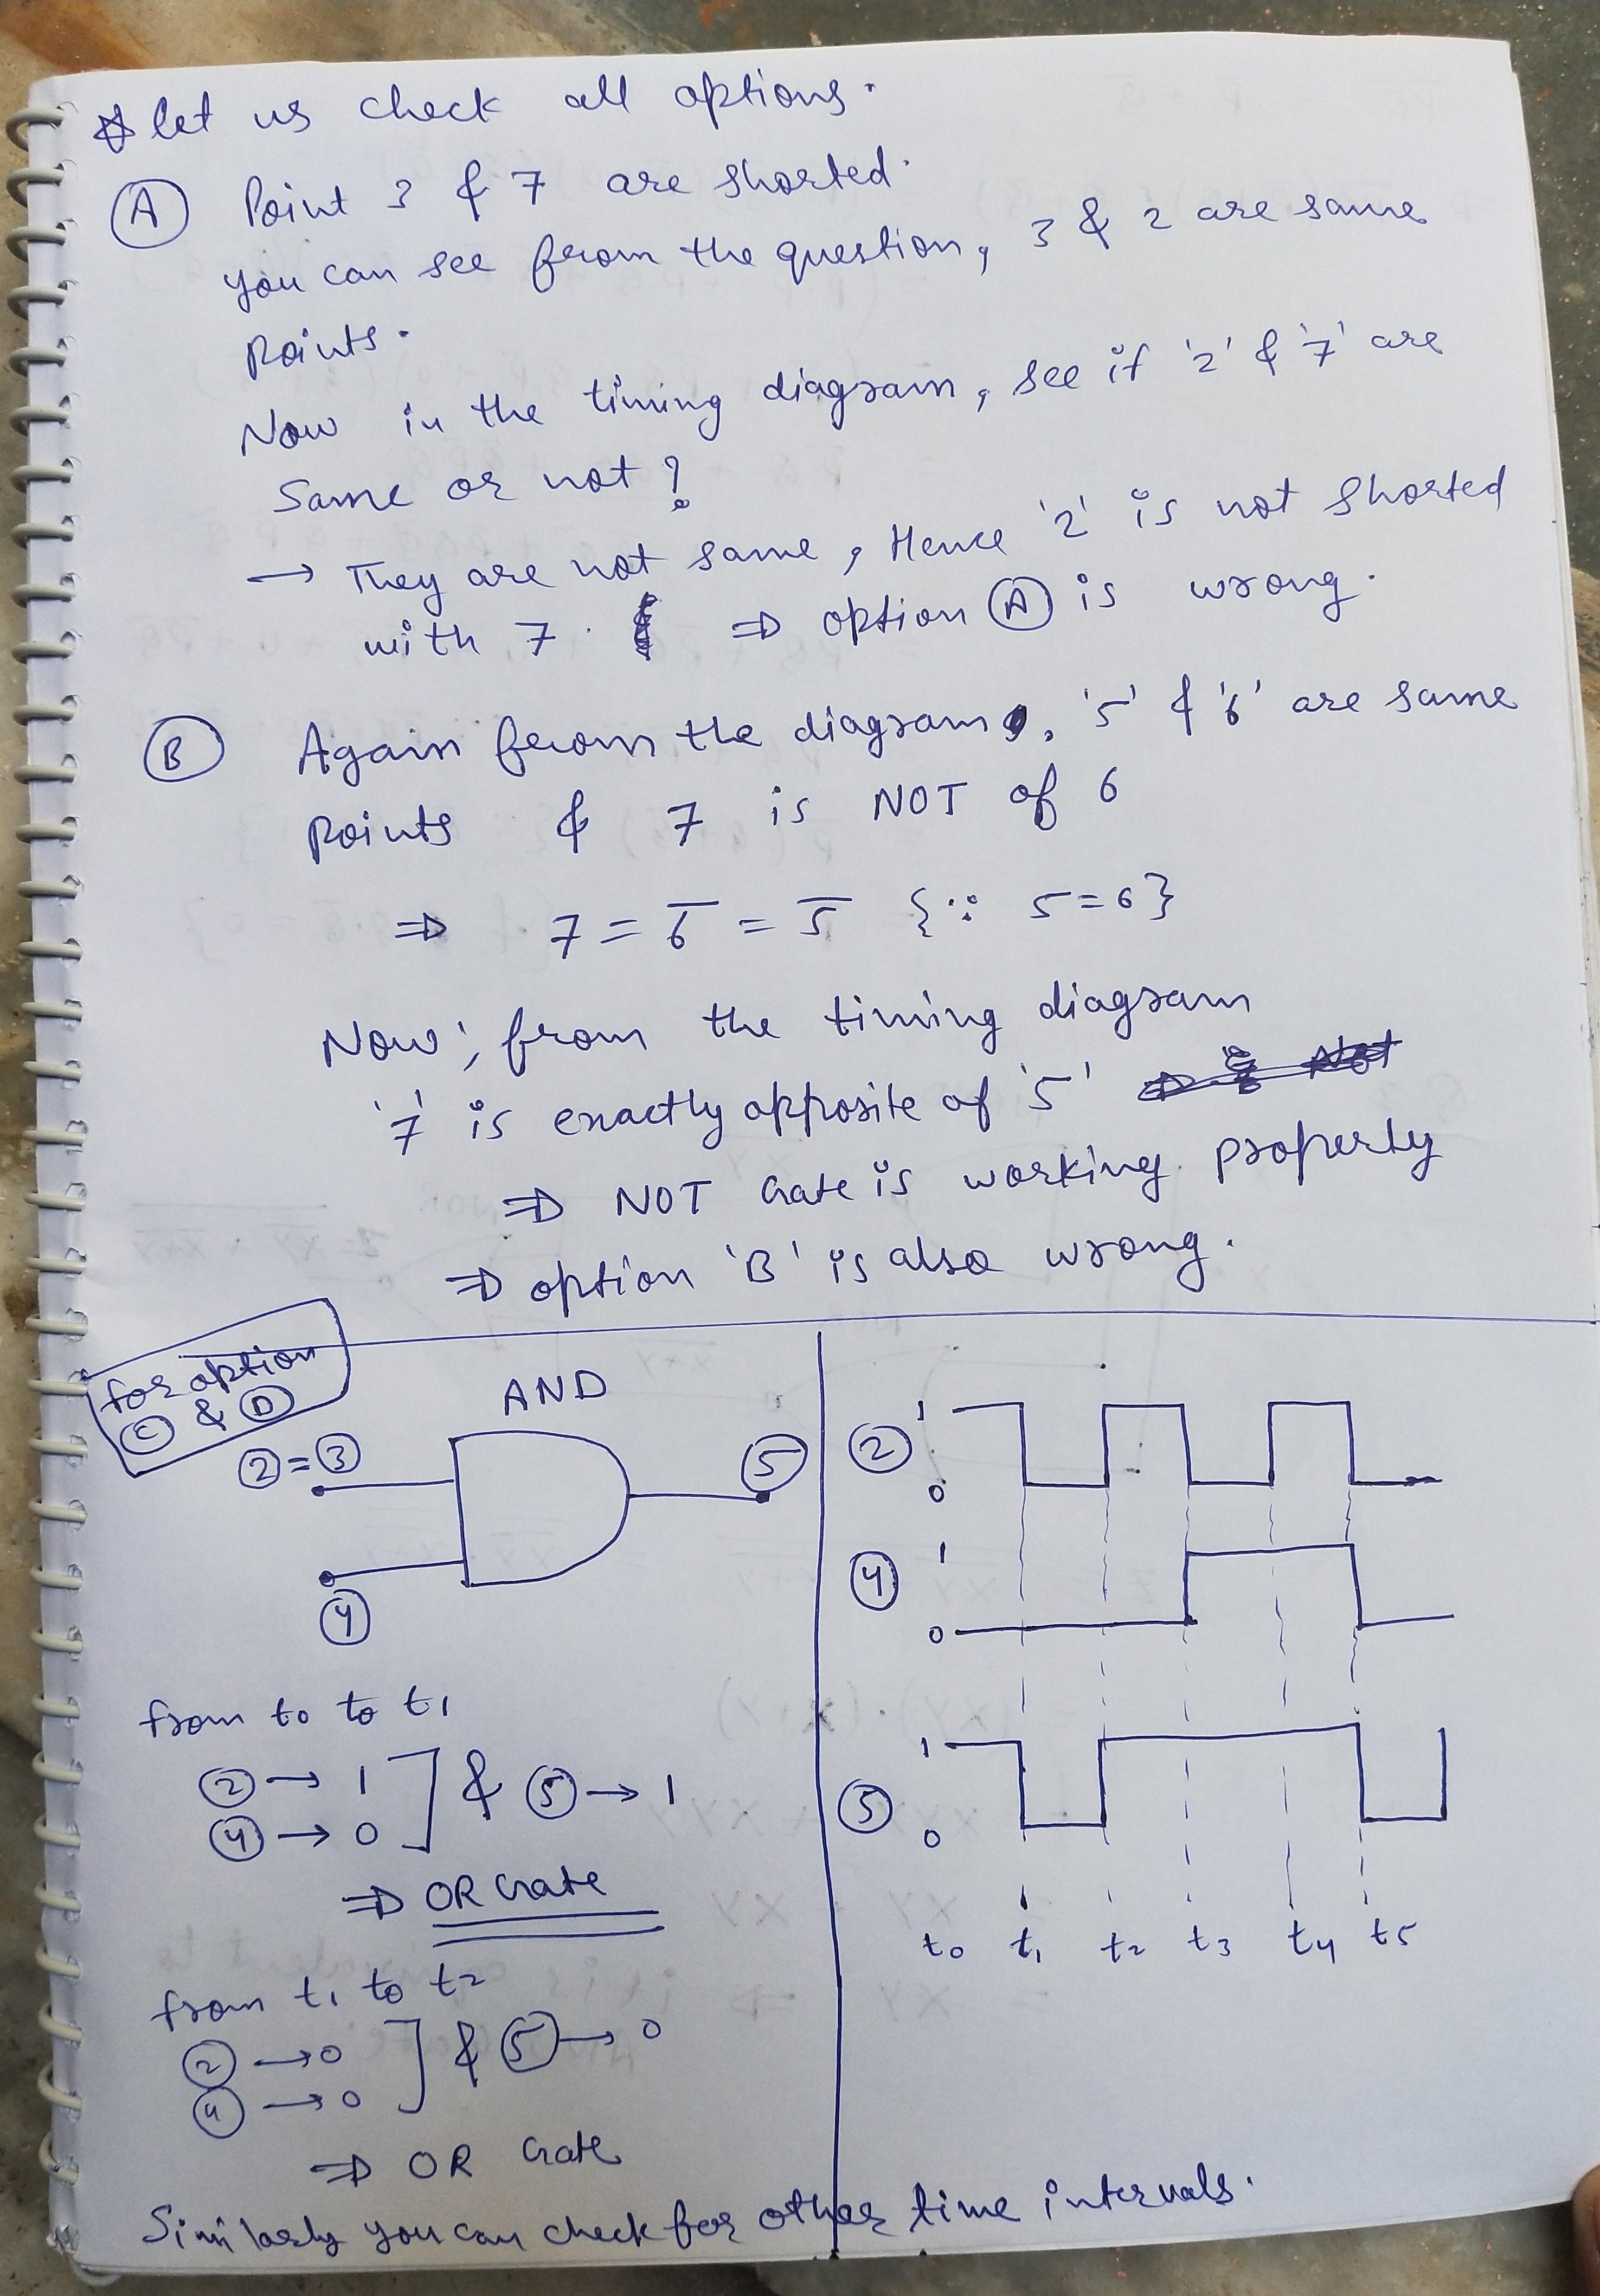 ☆ let us check all options.
(A) Point 3 & 7 are shorted.
you can see from the question, 3 & 2 are same
points.
Now in the timing diagram, see if '2' & '7' are
same or not?
→ They are not same, Hence '2' is not shorted
with 7. ⇒ option (A) is wrong.
(B) Again from the diagram, '5' & '6' are same
points & 7 is NOT of 6
⇒ 7 = 6̅ = 5̅ {∵ 5=6}
Now, from the timing diagram
'7' is exactly opposite of '5'
⇒ NOT Gate is working properly
⇒ option 'B' is also wrong.
for option
(C) & (D)
AND
(2)=(3)
(5)
(4)
from t0 to t1
(2) → 1 ] & (5) → 1
(4) → 0
⇒ OR Gate
from t1 to t2
(2) → 0 ] & (5) → 0
(4) → 0
⇒ OR Gate
Similarly you can check for other time intervals.
(2) 1
0
(4) 1
0
(5) 1
0
t0 t1 t2 t3 t4 t5